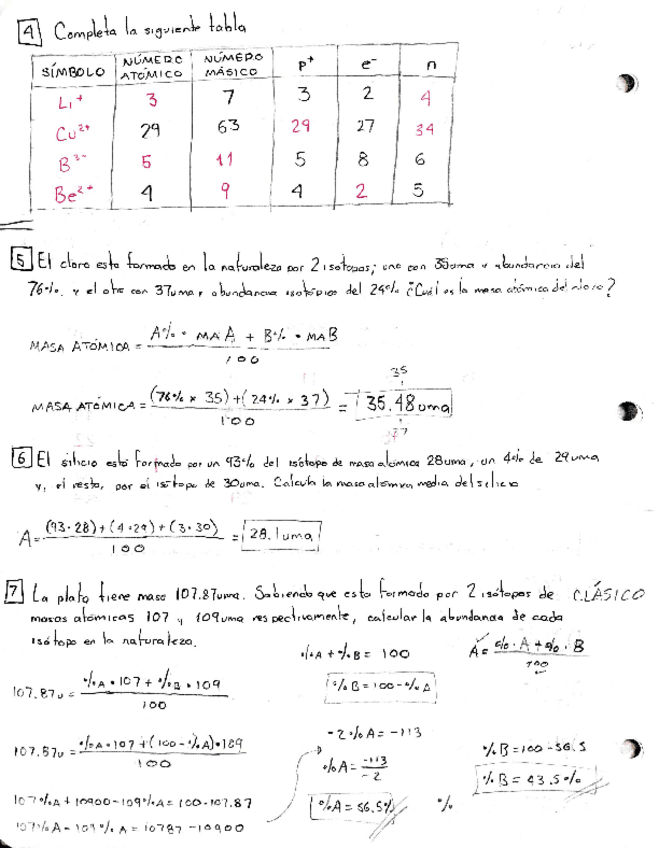 4 Completa la siguiente tabla
SÍMBOLO NÚMERO ATÓMICO NÚMERO MÁSICO P+ e- n
Li+ 3 7 3 2 4
Cu2+ 29 63 29 27 34
B3- 5 11 5 8 6
Be2+ 4 9 4 2 5
5 El cloro esta formado en la naturaleza por 2 isotopos; uno con 35uma y abundancia del
76%. y el otro con 37uma, abundancia isotópica del 24% ¿Cuál es la masa atómica del cloro?
MASA ATÓMICA = A%· MA A + B% · MA B / 100
35
MASA ATÓMICA = (76% x 35) + (24% x 37) / 100 = 35.48 uma
37
6 El silicio está formado por un 93% del isótopo de masa atómica 28uma, un 4% de 29uma
y, el resto, por el isótopo de 30uma. Calcula la masa atómica media del silicio
A = (93·28)+(4·29)+(3·30) / 100 = 28.1uma
7 La plata tiene masa 107.87uma. Sabiendo que esta formado por 2 isótopos de CLÁSICO
masas atomicas 107 y 109uma respectivamente, calcular la abundancia de cada
isótopo en la naturaleza.
%A + %B = 100
A = %·A + %·B / 100
107.87u = %A · 107 + %B · 109 / 100
%B = 100 - %A
-2%A = -113
107.87u = %A·107 + (100 - %A)·109 / 100
%A = -113 / -2
%B = 100 - 56.5
%B = 43.5%
107%A + 10900 - 109%A = 100·107.87
%A = 56.5%
%
107%A - 109%A = 10787 - 10900